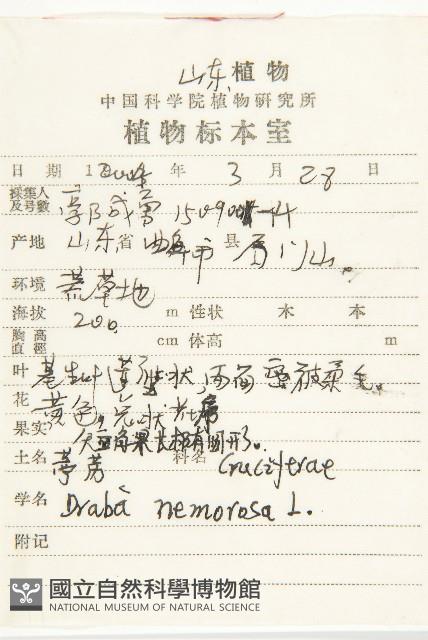 山东植物
中国科学院植物研究所
植物标本室
日期 1 2004 年 3 月 28 日
採集人及号數 郭成勇 150900
产地 山东省 曲阜市 县
环境 荒草地
海拔 200 m 性状 木 本
胸高直徑 cm 体高 m
叶 基生叶莲座状 两面 被柔毛。
花 黄色
果实 短角果 有
土名 葶苈 科名 Cruciferae
学名 Draba nemorosa L.
附记
國立自然科學博物館
NATIONAL MUSEUM OF NATURAL SCIENCE